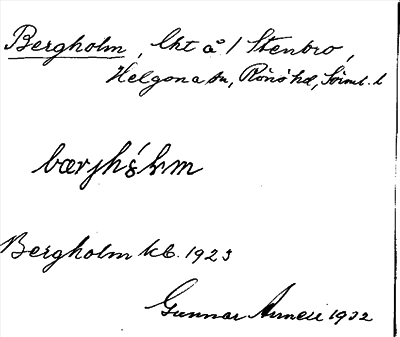 Bergholm, lht å / Stenbro,
Helgona sn, Rönö hd, Sörml. l
Bergholm kb. 1923
Gunnar 1932